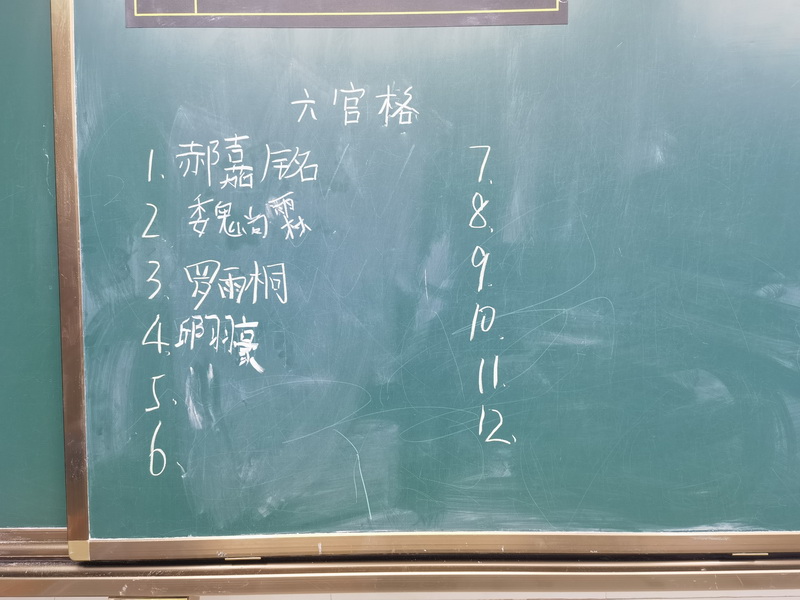 六官格
1. 郝嘉铭
2 魏尚霖
3. 罗雨桐
4. 邱羽豪
5.
6、
7.
8.
9.
10.
11.
12、